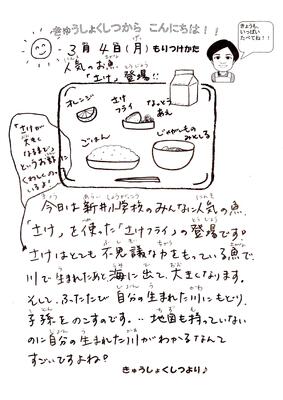 きゅうしょくしつから こんにちは！！
きょうも、
いっぱい
たべてね！！
3月4日(月) もりつけかた
人気のお魚
「さけ」登場!!
オレンジ
さけ
フライ
なっとう
あえ
ごはん
じゃがいもの
みそしる
「さけが
大きく
なるまで」
という
お話
くわしい
今日は新井小学校のみんなに人気の魚、
「さけ」を使った「さけフライ」の登場です。
さけはとても不思議な力をもっている魚で、
川で生まれたあと、海に出て、大きくなります。
そして、ふたたび自分の生まれた川にもどり、
子孫をのこすのです。地図も持っていない
のに自分の生まれた川がわかるなんて
すごいですよね？
きゅうしょくしつより♪